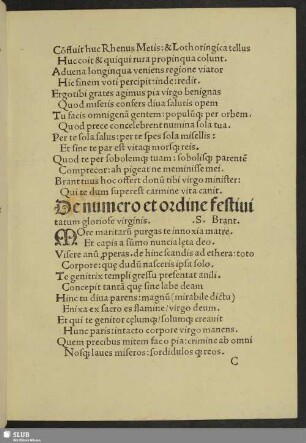 Cõfluit huc Rhenus Metis: & Lothoringica tellus
Huc coit & quiqui rura propinqua colunt.
Aduena longinqua veniens regione viator
Hic finem voti percipit: inde: redit.
Ergo tibi grates agimus pia virgo benignas
Quod miseris confers diua salutis opem
Tu facis omnigenã gentem: populũq; per orbem.
Quod prece concelebrent numina sola tua.
Per te sola salus: per te spes sola misellis:
Et sine te par est vitaq; morsq; reis.
Quod te per sobolemq; tuam: sobolisq; parentẽ
Comprecor: ah pigeat ne meminisse mei.
Brant tuus hoc offert donũ tibi virgo minister:
Qui te dum superest carmine vita canit.
De numero et ordine festiui
tatum gloriose virginis. .S. Brant.
MOre maritarũ purgas te innoxia matre.
Et capis a sũmo nuncia lęta deo.
Visere anũ, pperas. de hinc scandis ad ethera: toto
Corpore: que dudũ nasceris ipsa solo.
Te genitrix templi gressu presentat anili.
Concepit tantã que sine labe deam
Hinc tu diua parens: magnũ (mirabile dictu)
Enixa ex sacro es flamine / virgo deum.
Et qui te genitor cęlumq; / solumq; creauit
Hunc paris: intacto corpore virgo manens.
Quem precibus mitem faco pia: crimine ab omni
Nosq; laues miseros: sordidulosq; reos.
C
SLUB